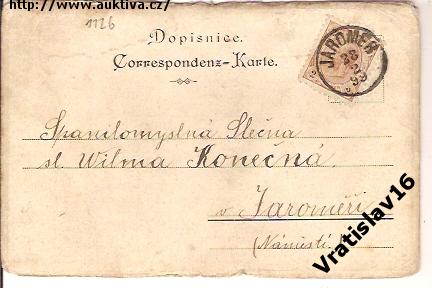 http://www.auktiva.cz/
1126
Dopisnice.
Correspondenz-Karte.
JAROMĚŘ
28
2
99
Spanilomyslná Slečna
sl. Wilma Konečná
v Jaroměři
(Náměstí.)
Vratislav16